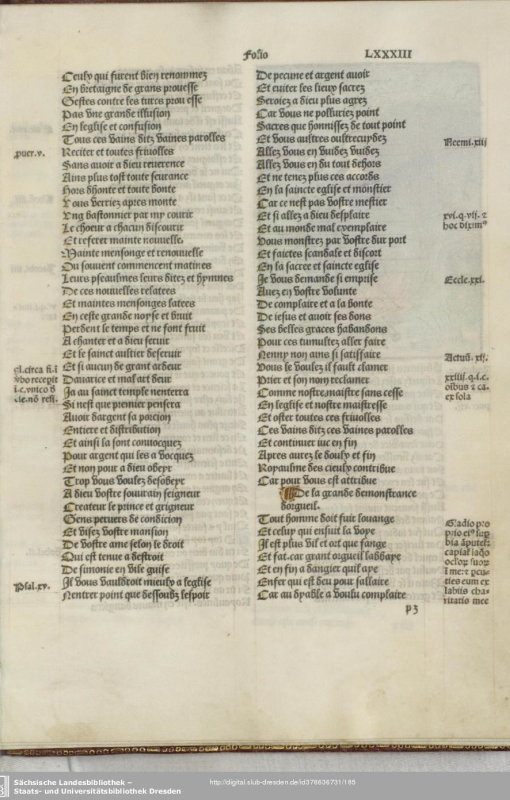 Folio LXXXIII
Ceulx qui furent bien renommez
En bretaigne de grans prouesse
Gestes contre les turcs prouesse
Pas une grande illusion
En leglise et confusion
Tous ces vains ditz vaines parolles
Reciter et toutes friuolles
Sans auoir a dieu reuerence
Ains plus tost toute seurance
Hors dhonte et toute honte
Vous verriez apres monte
Ung bastonnier par my courir
Le choeur a chacun discourir
Et referer mainte nouuelle
Mainte mensonge et renouuelle
Ou souuent commencent matines
Leurs pseaulmes leurs ditz et hymnes
De ces nouuelles relatees
Et maintes mensonges latees
En ceste grande noyse et bruit
Perdent le temps et ne font fruit
A chanter et a dieu seruir
Et le sainct aultier deseruir
Et si aucun de grant ardeur
Dauarice et mal art deur
Ja au sainct temple nenterra
Si nest que premier pensera
Auoir dargent sa porcion
Entiere et distribution
Et ainsi la sont conuocquez
Pour argent qui les a vocquez
Et non pour a dieu obeyr
Trop vous voulez desobeyr
A dieu vostre souurain seigneur
Createur le prince et grigneur
Gens peruers de condicion
Et visez vostre mansion
De vostre ame selon le droit
Qui est tenue a destroit
De simonie en vile guise
Il vous vauldroit mieulx a leglise
Nentrer point que dessoubz lespoir
puer. v.
Psal. xv.
De pecune et argent auoir
Et euiter les lieux sacrez
Seroiez a dieu plus agrez
Car vous ne polluriez point
Sacres que honnissez de tout point
Et vous aultres oultrecuydez
Allez vous en vuidez vuidez
Allez vous en du tout dehors
Et ne tenez plus ces accords
En la saincte eglise et monstier
Car ce nest pas vostre mestier
Et si allez a dieu desplaire
Et au monde mal exemplaire
Vous monstrez par vostre dur port
Et faictes scandale et discort
En la sacree et saincte eglise
Je vous demande si emprise
Auez en vostre voulunte
De complaire et a la bonte
De iesus et auoir ses dons
Ses belles graces habandons
Pour ces tumultez aller faire
Nenny non ains si satiffaire
Vous le voulez il fault clamer
Prier et son nom reclamer
Comme nostre maistre sans cesse
En leglise et nostre maistresse
Et oster toutes ces friuolles
Ces vains ditz ces vaines parolles
Et continuer iuc en fin
Apres aurez le doulx et fin
Royaulme des cieulx contribue
Car pour vous est attribue
De la grande demonstrance
dorgueil.
Tout homme doit fuir louange
Et celuy qui ensuit la voye
Il est plus vil et ort que fange
Et fat. car grant orgueil labbaye
Et en fin a dangier quil aye
Enfer qui est deu pour sallaire
Car au dyable a voulu complaire
p3
Neemi. xiii
xvi. q. vij. et
Eccle. xxi.
Actuu. xij.
xxiiii. q. i. c.
ex sola
Sächsische Landesbibliothek –
Staats- und Universitätsbibliothek Dresden
http://digital.slub-dresden.de/id378636731/185